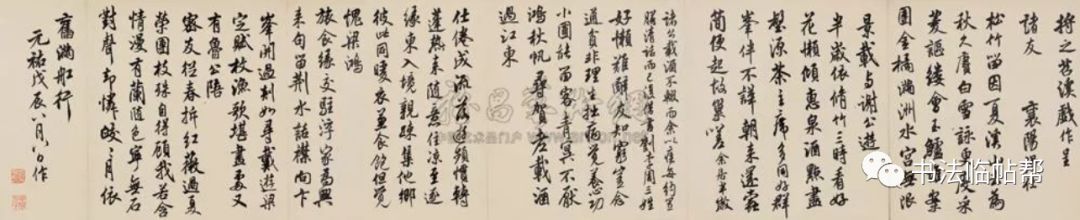 將之苕溪戲作呈
諸友 襄陽
松竹留因夏溪山去為
秋久賡白雪詠更度采
菱謳縷會玉鱸堆案
團金橘滿洲水宮無限
景載與謝公遊
半歲依修竹三時看好
花懶傾惠泉酒點盡
壑源茶主席多同好群
峯伴不譁朝來還蠹
簡便起故巢嗟 余居半歲
諸公載酒不輟而余以疾每約置
膳清話而已復借書劉李周三姓
好懶難辭友知窮豈念
通貧非理生拙病覺養心功
小圃能留客青冥不厭
鴻秋帆尋賀老載酒
過江東
仕倦成流落遊頻慣轉
蓬熱來隨意住涼至逐
緣東入境親疎集他鄉
彼此同暖衣兼食飽但覺
愧梁鴻
旅食緣交駐浮家為興
來句留荊水話襟向卞
峯開過剡如尋戴遊梁
定賦枚漁歌堪畫處又
有魯公陪
密友從春拆紅薇過夏
榮團枝殊自得顧我若含
情漫有蘭隨色寧無石
對聲却憐皎皎月依
舊滿船行
元祐戊辰八月八日作
书法临帖帮